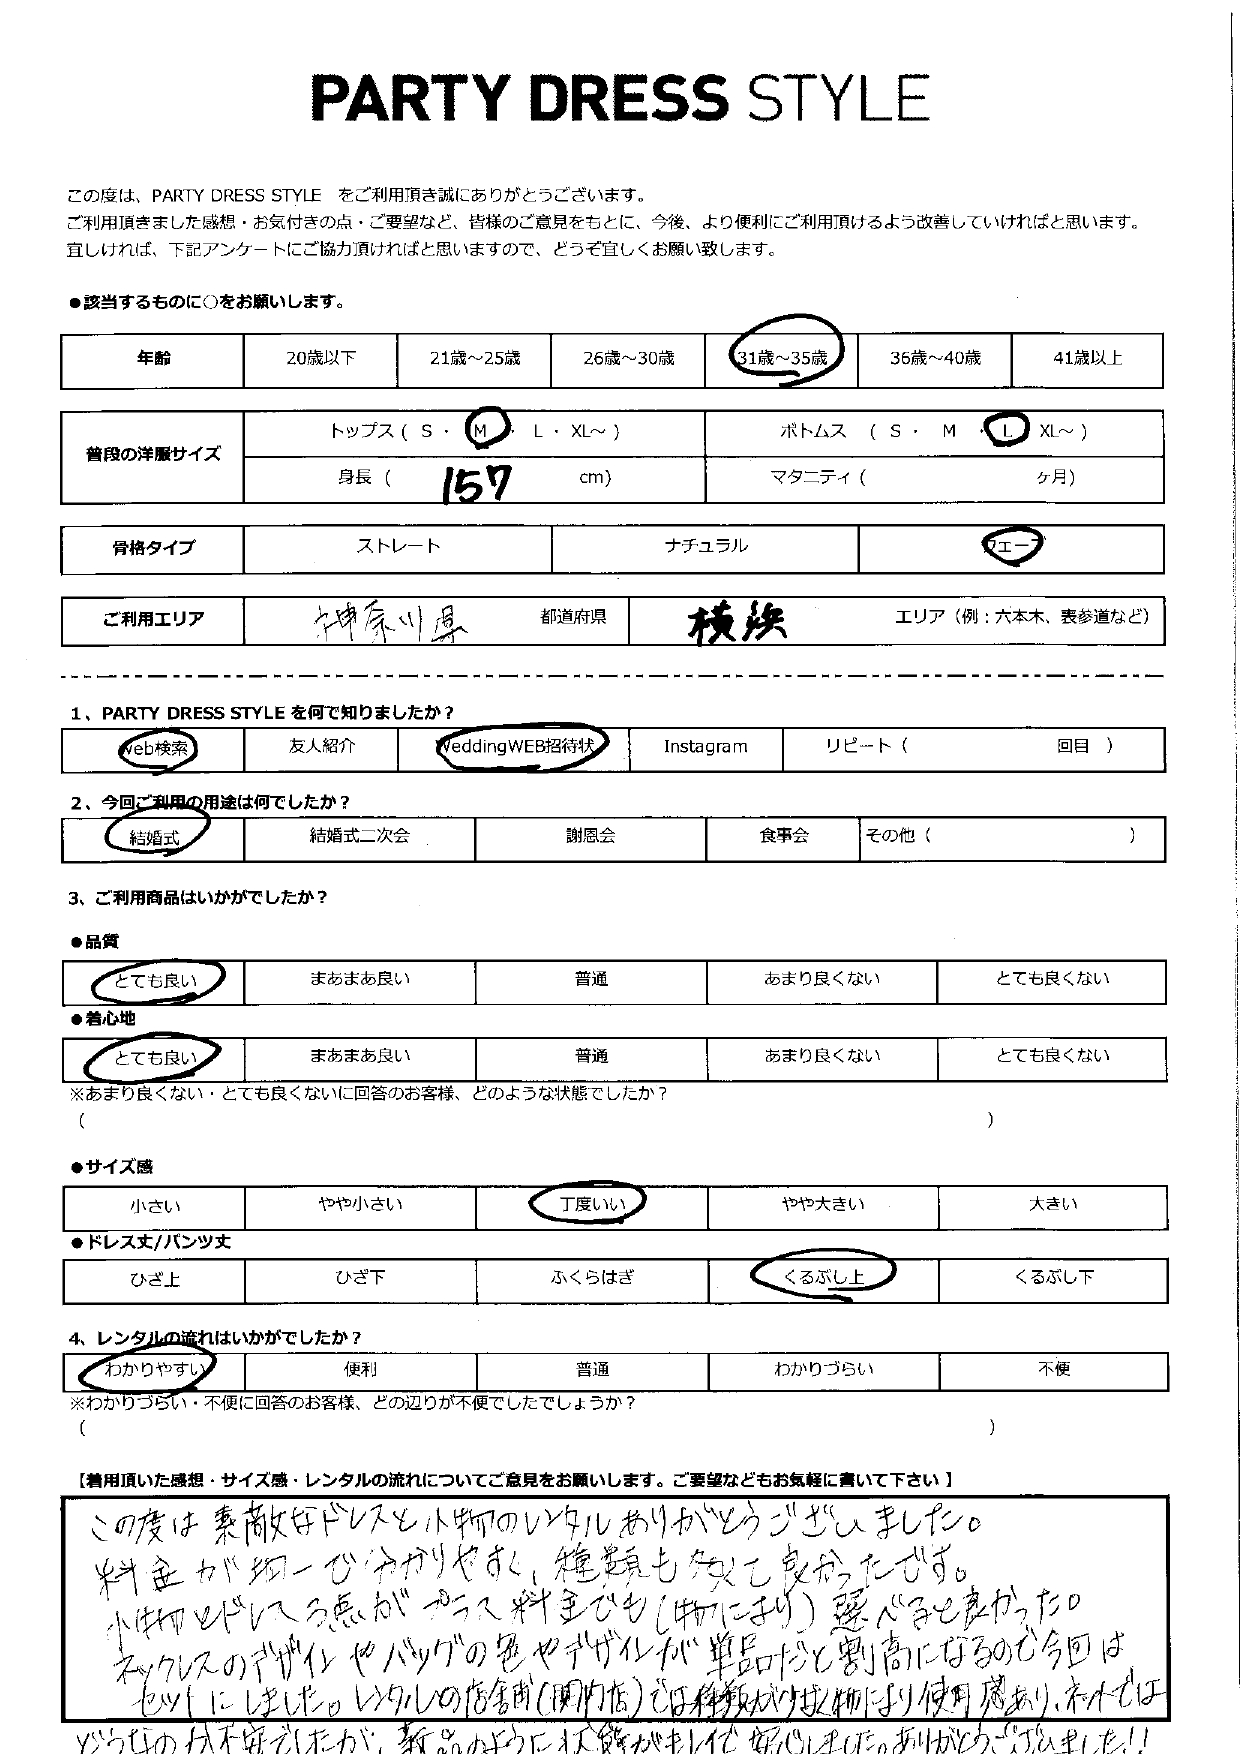 PARTY DRESS STYLE
この度は、PARTY DRESS STYLE をご利用頂き誠にありがとうございます。
ご利用頂きました感想・お気付きの点・ご要望など、皆様のご意見をもとに、今後、より便利にご利用頂けるよう改善していければと思います。
宜しければ、下記アンケートにご協力頂ければと思いますので、どうぞ宜しくお願い致します。
●該当するものに○をお願いします。
年齢 20歳以下 21歳～25歳 26歳～30歳 31歳～35歳 36歳～40歳 41歳以上
普段の洋服サイズ トップス ( S ・ M ・ L ・ XL～ ) ボトムス ( S ・ M ・ L XL～ )
身長 ( 157 cm) マタニティ ( ヶ月)
骨格タイプ ストレート ナチュラル ウェーブ
ご利用エリア 神奈川県 都道府県 横浜 エリア（例：六本木、表参道など）
1、PARTY DRESS STYLE を何で知りましたか？
Web検索 友人紹介 WeddingWEB招待状 Instagram リピート ( 回目 )
2、今回ご利用の用途は何でしたか？
結婚式 結婚式二次会 謝恩会 食事会 その他 ( )
3、ご利用商品はいかがでしたか？
●品質
とても良い まあまあ良い 普通 あまり良くない とても良くない
●着心地
とても良い まあまあ良い 普通 あまり良くない とても良くない
※あまり良くない・とても良くないに回答のお客様、どのような状態でしたか？
( )
●サイズ感
小さい やや小さい 丁度いい やや大きい 大きい
●ドレス丈/パンツ丈
ひざ上 ひざ下 ふくらはぎ くるぶし上 くるぶし下
4、レンタルの流れはいかがでしたか？
わかりやすい 便利 普通 わかりづらい 不便
※わかりづらい・不便に回答のお客様、どの辺りが不便でしたでしょうか？
( )
【着用頂いた感想・サイズ感・レンタルの流れについてご意見をお願いします。ご要望などもお気軽に書いて下さい】
この度は素敵なドレスと小物のレンタルありがとうございました。
料金が均一で分かりやすく、種類も多くて良かったです。
小物とドレス3点がプラス料金でも(物により)選べると良かった。
ネックレスのデザインやバッグの色やデザインが単品だと割高になるので今回は
セットにしました。レンタルの店舗(関内店)では種類が少なく物により使用感あり、ネットでは
どうなのか不安でしたが、新品のように状態がキレイで安心しました。ありがとうございました!!